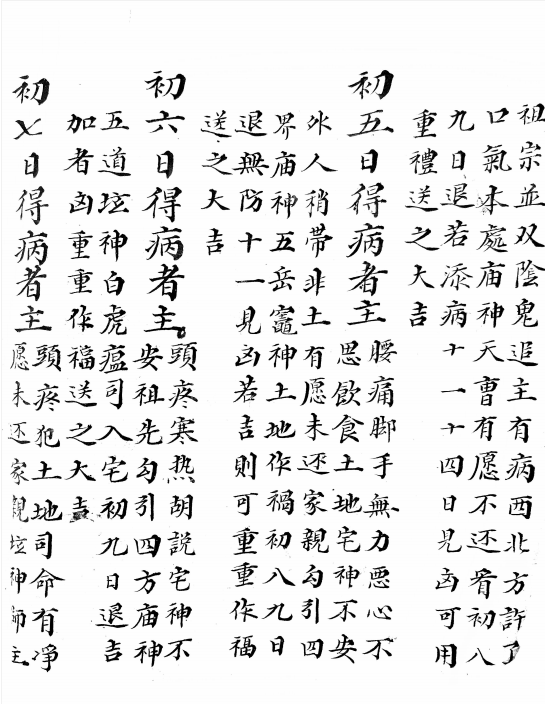 祖宗並双陰鬼追主有病西北方許了
口氣本處庙神天曹有愿不还眚初八
九日退若添病十一十四日見凶可用
重禮送之大吉
初五日得病者主腰痛脚手無力悪心不
思飲食土地宅神不安
外人稍帶非土有愿未还家親勾引四
界庙神五岳竈神土地作禍初八九日
退無防十一見凶若吉則可重重作福
送之大吉
初六日得病者主頭疼寒热胡説宅神不
安祖先勾引四方庙神
五道坛神白虎瘟司入宅初九日退吉
加者凶重重作福送之大吉
初七日得病者主頭疼犯土地司命有净
愿未还家親坛神师主